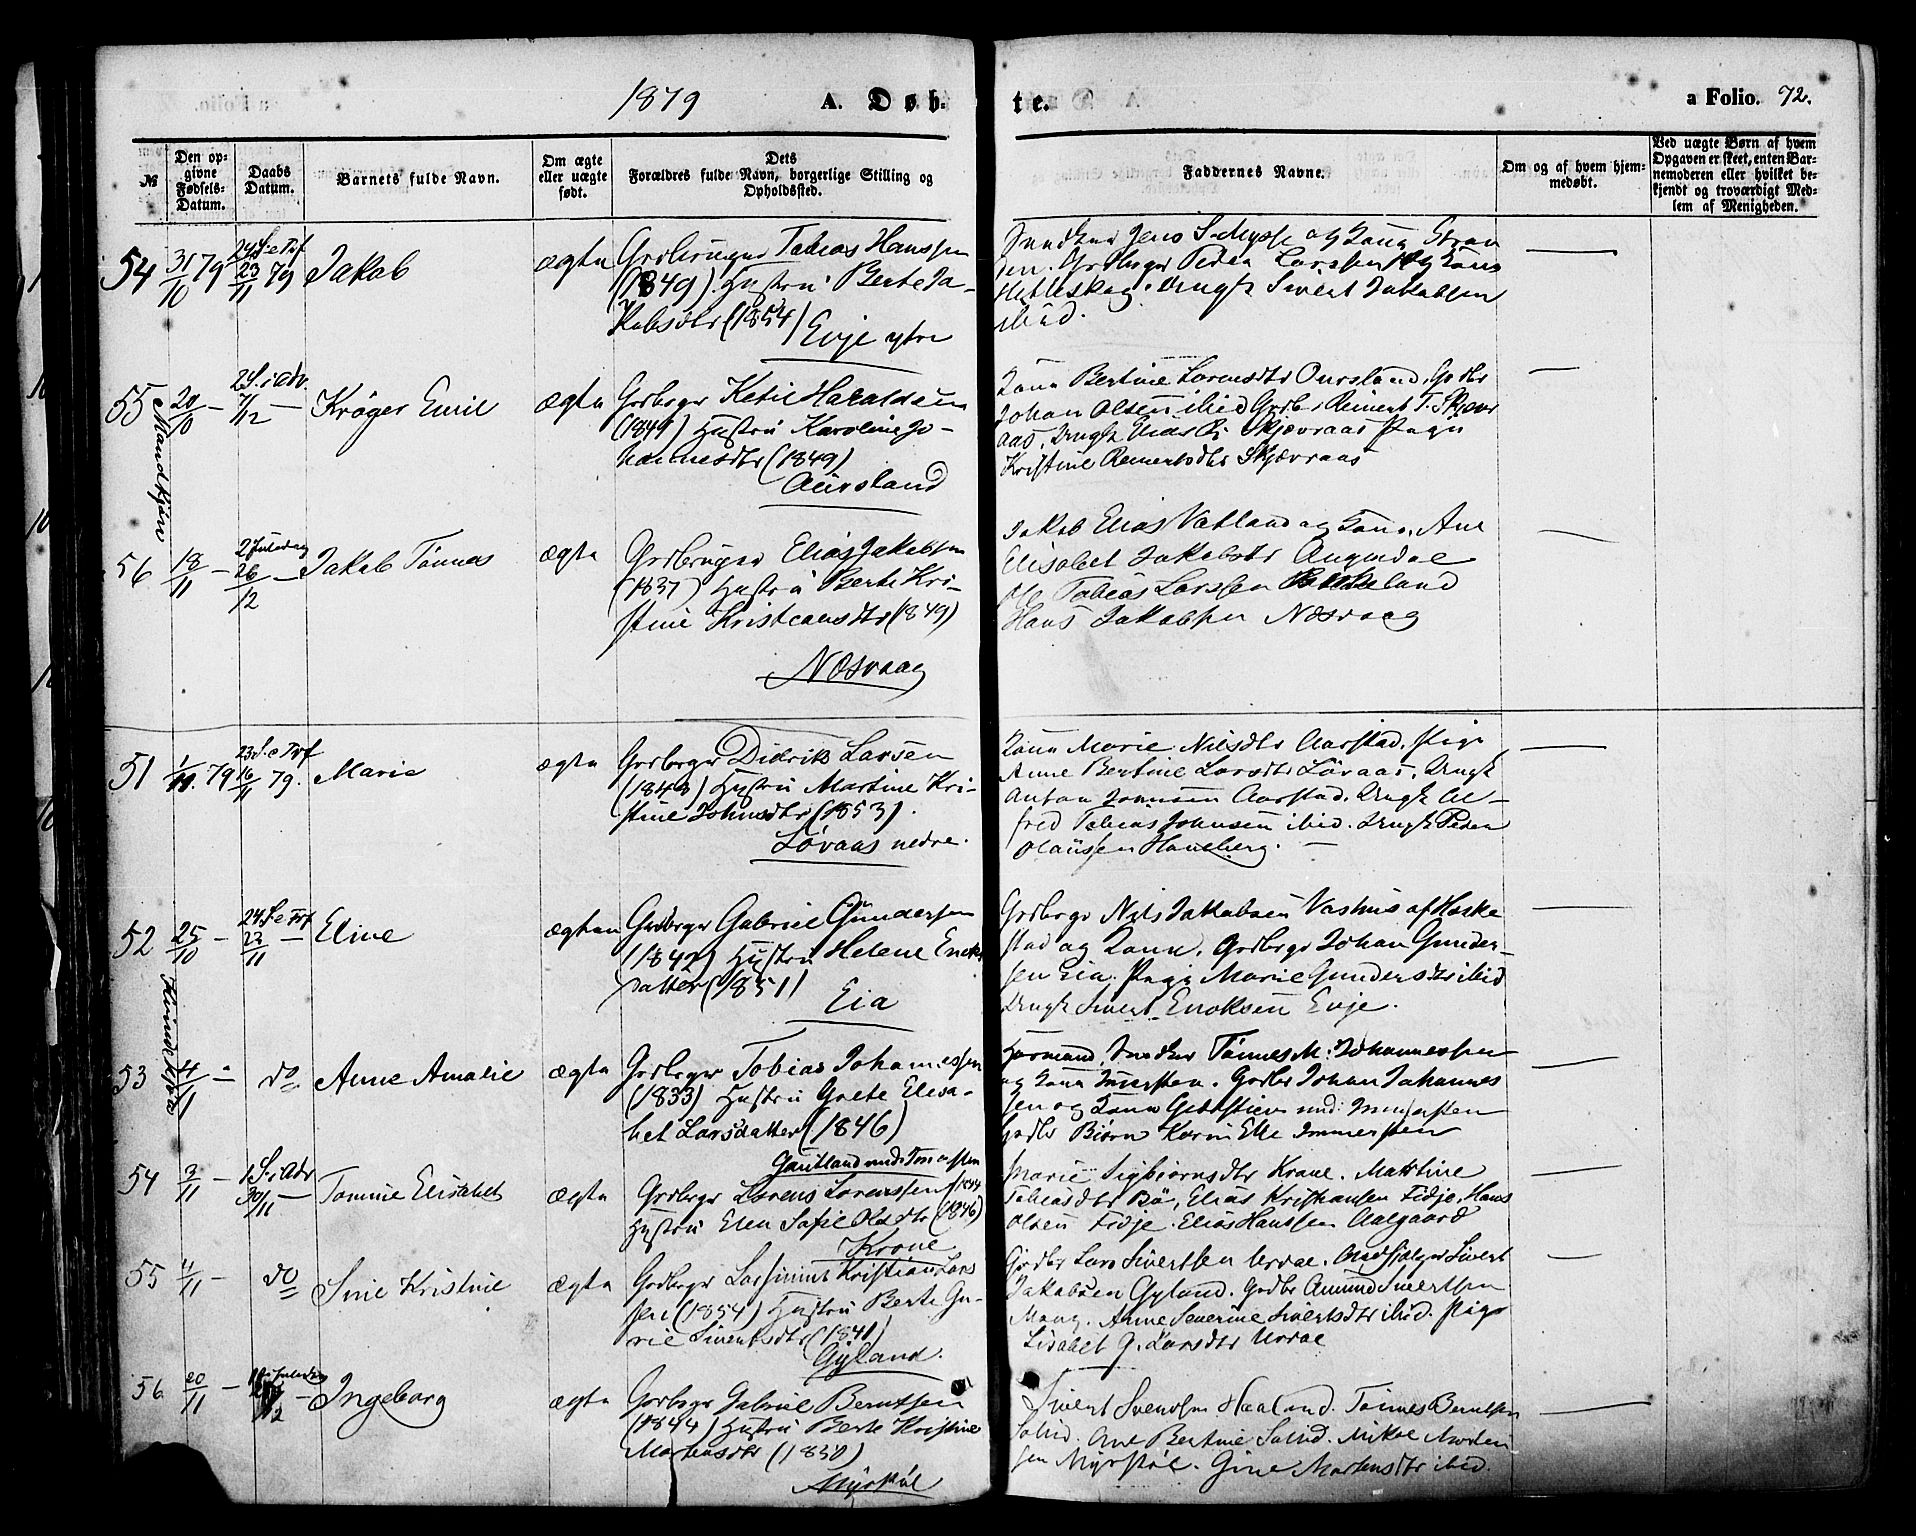 1879 A. Døb- te. a Folio. 72.
№
Den op-
givne
Fødsels-
Datum.
Daabs
Datum.
Barnets fulde Navn.
Om ægte
eller uægte
født.
Dets
Forældres fulde Navn, borgerlige Stilling og
Opholdssted.
Faddernes Navne.
Om og af hvem hjem-
medøbt.
Ved uægte Børn af hvem
Opgaven er skeet, enten Bar-
nemoderen eller hvilket be-
kjendt og troværdigt Med-
lem af Menigheden.
Mandkjøn
54 31/10 79
24 S. e Trf
23/11 79
Jakob
ægte
Grdbruger Tobias Hanssen
(1849). Hustru Berte Ja-
kobsdtr (1854)
Evje ytre
Jens og Kona
Grdbrgr Peder Larssen og Kona
Hetleskog. Ungk Sivert Jakobsen
ibid.
55 20/10 –
2 S. i Adv.
7/12 –
Krøger Emil
ægte
Grdbrgr Ketil Haraldsen
(1849) Hustru Karoline Jo-
hannesdtr (1849)
Aursland
Kona Bertine Larensdtr Oursland, Grdbr
Johan Olsen ibid Grdbr Reinert T. Skjævr
aas. Ungk Elias R. Skjævraas Pige
Kristine Reinertsdtr Skjævraas
56 18/11 –
2 Juledag
26/12 –
Jakob Tønnes
ægte
Grdbruger Elias Jakobsen
(1837) Hustru Berte Kri-
stine Kristensdtr (1849)
Næsvaag
Jakob Elias Vatland og Kona, Ane
Elisabet Jakobsdtr Augendal
Tobias Larssen Birkeland
Hans Jakobsen Næsvaag
Kvindekjøn
51 1/11. 79
23 S. e Trf
16/11 79.
Marie
ægte
Grdbrgr Didrik Larsen
(1843) Hustru Martine Kri-
stine Johnsdtr (1853).
Løvaas nedre.
Kona Marie Nilsdtr Aarstad. Pige
Anne Bertine Larsdtr Løvaas, Ungk
Anton Johnsen Aarstad. Ungk Al-
fred Tobias Johnsen ibid. Ungk Peder
Olausen Haneberg. –
52 25/10 –
24 S. e Trf
23/11 –
Eline
ægte
Grdbrgr Gabriel Gundersen
(1842) Hustru Helene Enoks
datter (1851)
Eia
Grdbrgr Nils Jakobsen Vashus af Heske
stad og Kona. Grdbrgr Johan Gunder-
sen Eia. Pige Marie Gundersdtr ibid
Ungk Sivert Enoksen Evje.
53 4/11 –
do
Anne Amalie
ægte
Grdbrgr Tobias Johannessen
(1833) Hustru Grete Elisa-
bet Larsdatter (1846)
Gautland
Tønnes M. Johannessen
og Kona. Grdbr Johan Johannes
sen og Kona
Grdbr Bjørn
54 3/11
1 S. i Adv
30/11 –
Tomine Elisabet
ægte
Grdbrgr Lorens Lorenssen
Hustru Elen Sofie Olsdtr (1846)
Krone
Marie Sigbjørnsdtr Krone. Martine
Tobiasdtr Bø, Elias Kristiansen Fidje, Hans
Olsen Fidje. Elias Hanssen Aalgaard
55 4/11 –
do
Sine Kristine
ægte
Grdbrgr Kristian Lars
sen (1854) Hustru Berte Gu-
rie Sivertsdtr (1841)
Gyland.
Grdbr Lars Sivertsen Urdal. Sivert
Jakobsen Gyland. Grdbr Amund Sivertsen
Moug. Anne Severine Sivertsdtr ibid. Pige
Lisabet G. Larsdtr Urdal
56 20/11 –
Ingeborg
ægte
Grdbrgr Gabriel Berntsen
(1844) Hustru Berte Kristine
Mortensdtr (1850)
Myrstøl
Sivert Svendsen Haaland. Tønnes Berntsen
Solid. Ane Bertine Solid. Mikal Morten
sen Myrstøl. Gine Mortensdtr ibid.